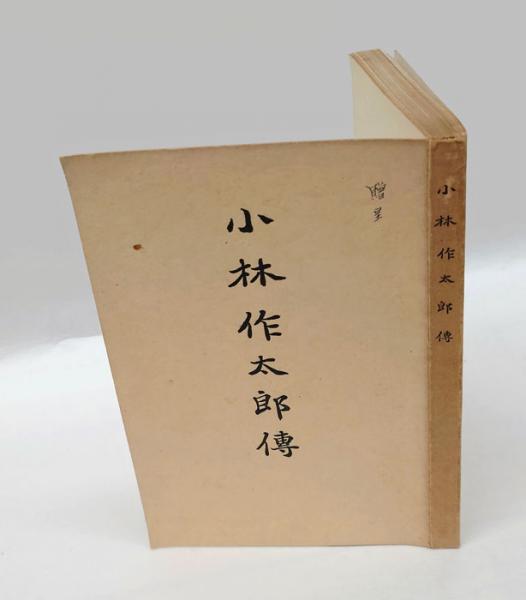 贈呈
小林作太郎傳
小林作太郎傳